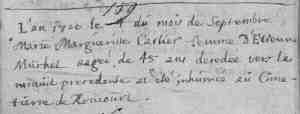 L'an 1792 le 4 du mois de Septembre
Marie Marguerite Cartier femme D'Etienne
Michel agée de 45 ans decedée vers le
minuit precedente a été inhumée au Cime-
tierre de Roucourt.